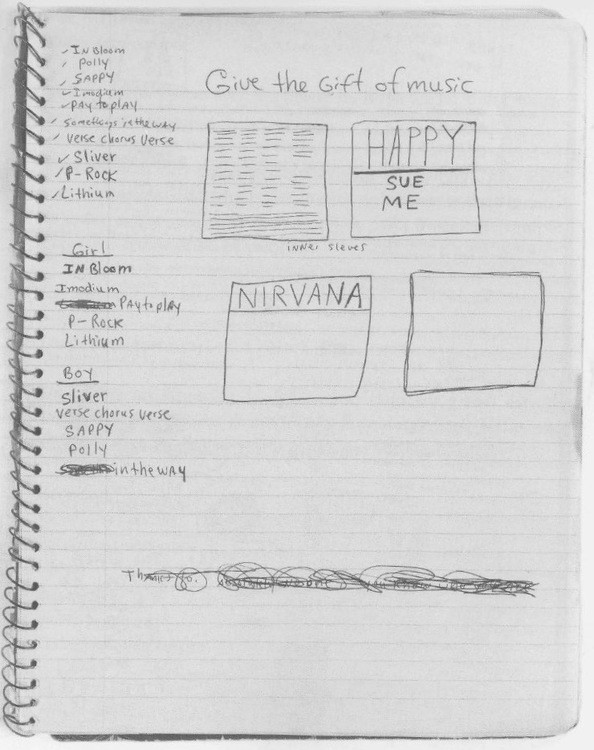 In Bloom
Polly
SAPPY
Imodium
PAY to PLAY
Somethings in the way
Verse Chorus Verse
Sliver
P-Rock
Lithium
Give the Gift of music
HAPPY
SUE
ME
inner sleves
NIRVANA
Girl
IN Bloom
Imodium
PAy to plAy
P-Rock
Lithium
Boy
Sliver
Verse chorus verse
SAPPY
Polly
in the wAy